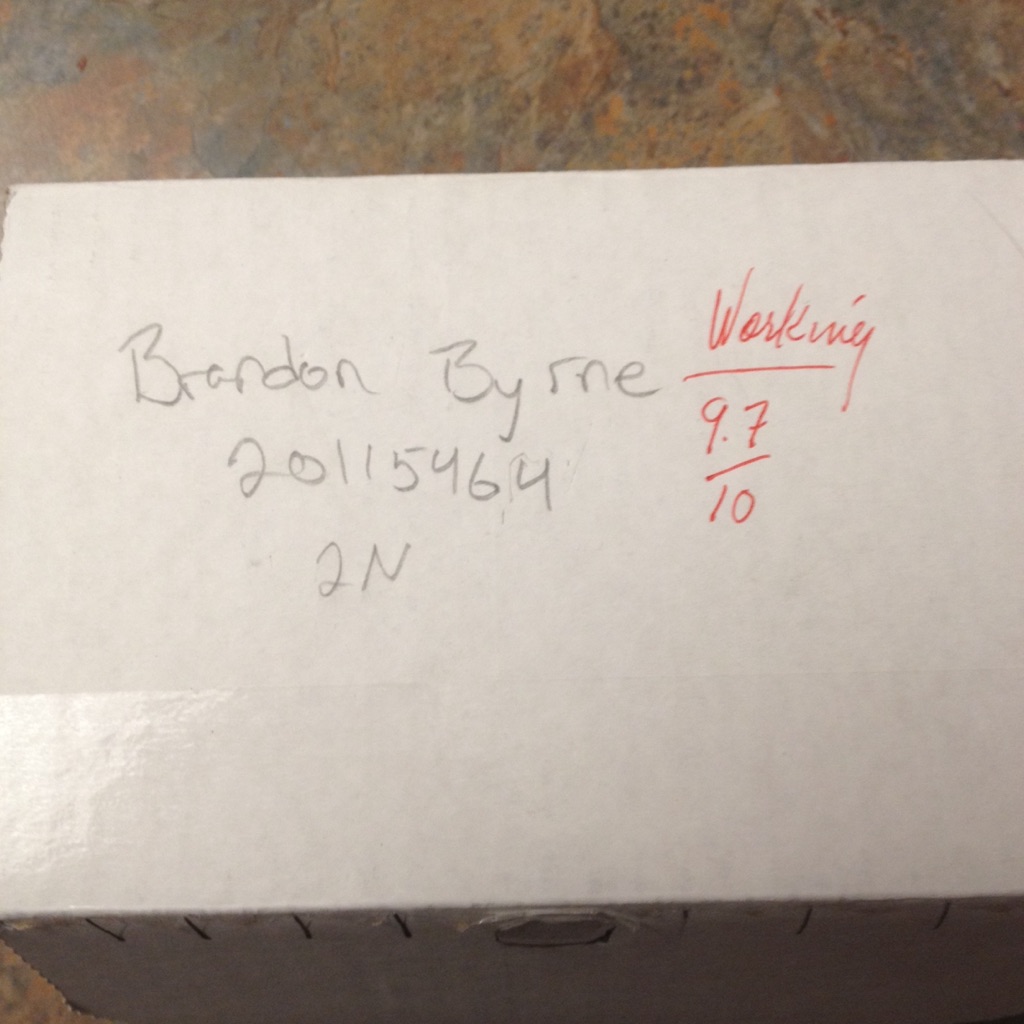 Brandon Byrne
20115464
2N
Working
9.7
10